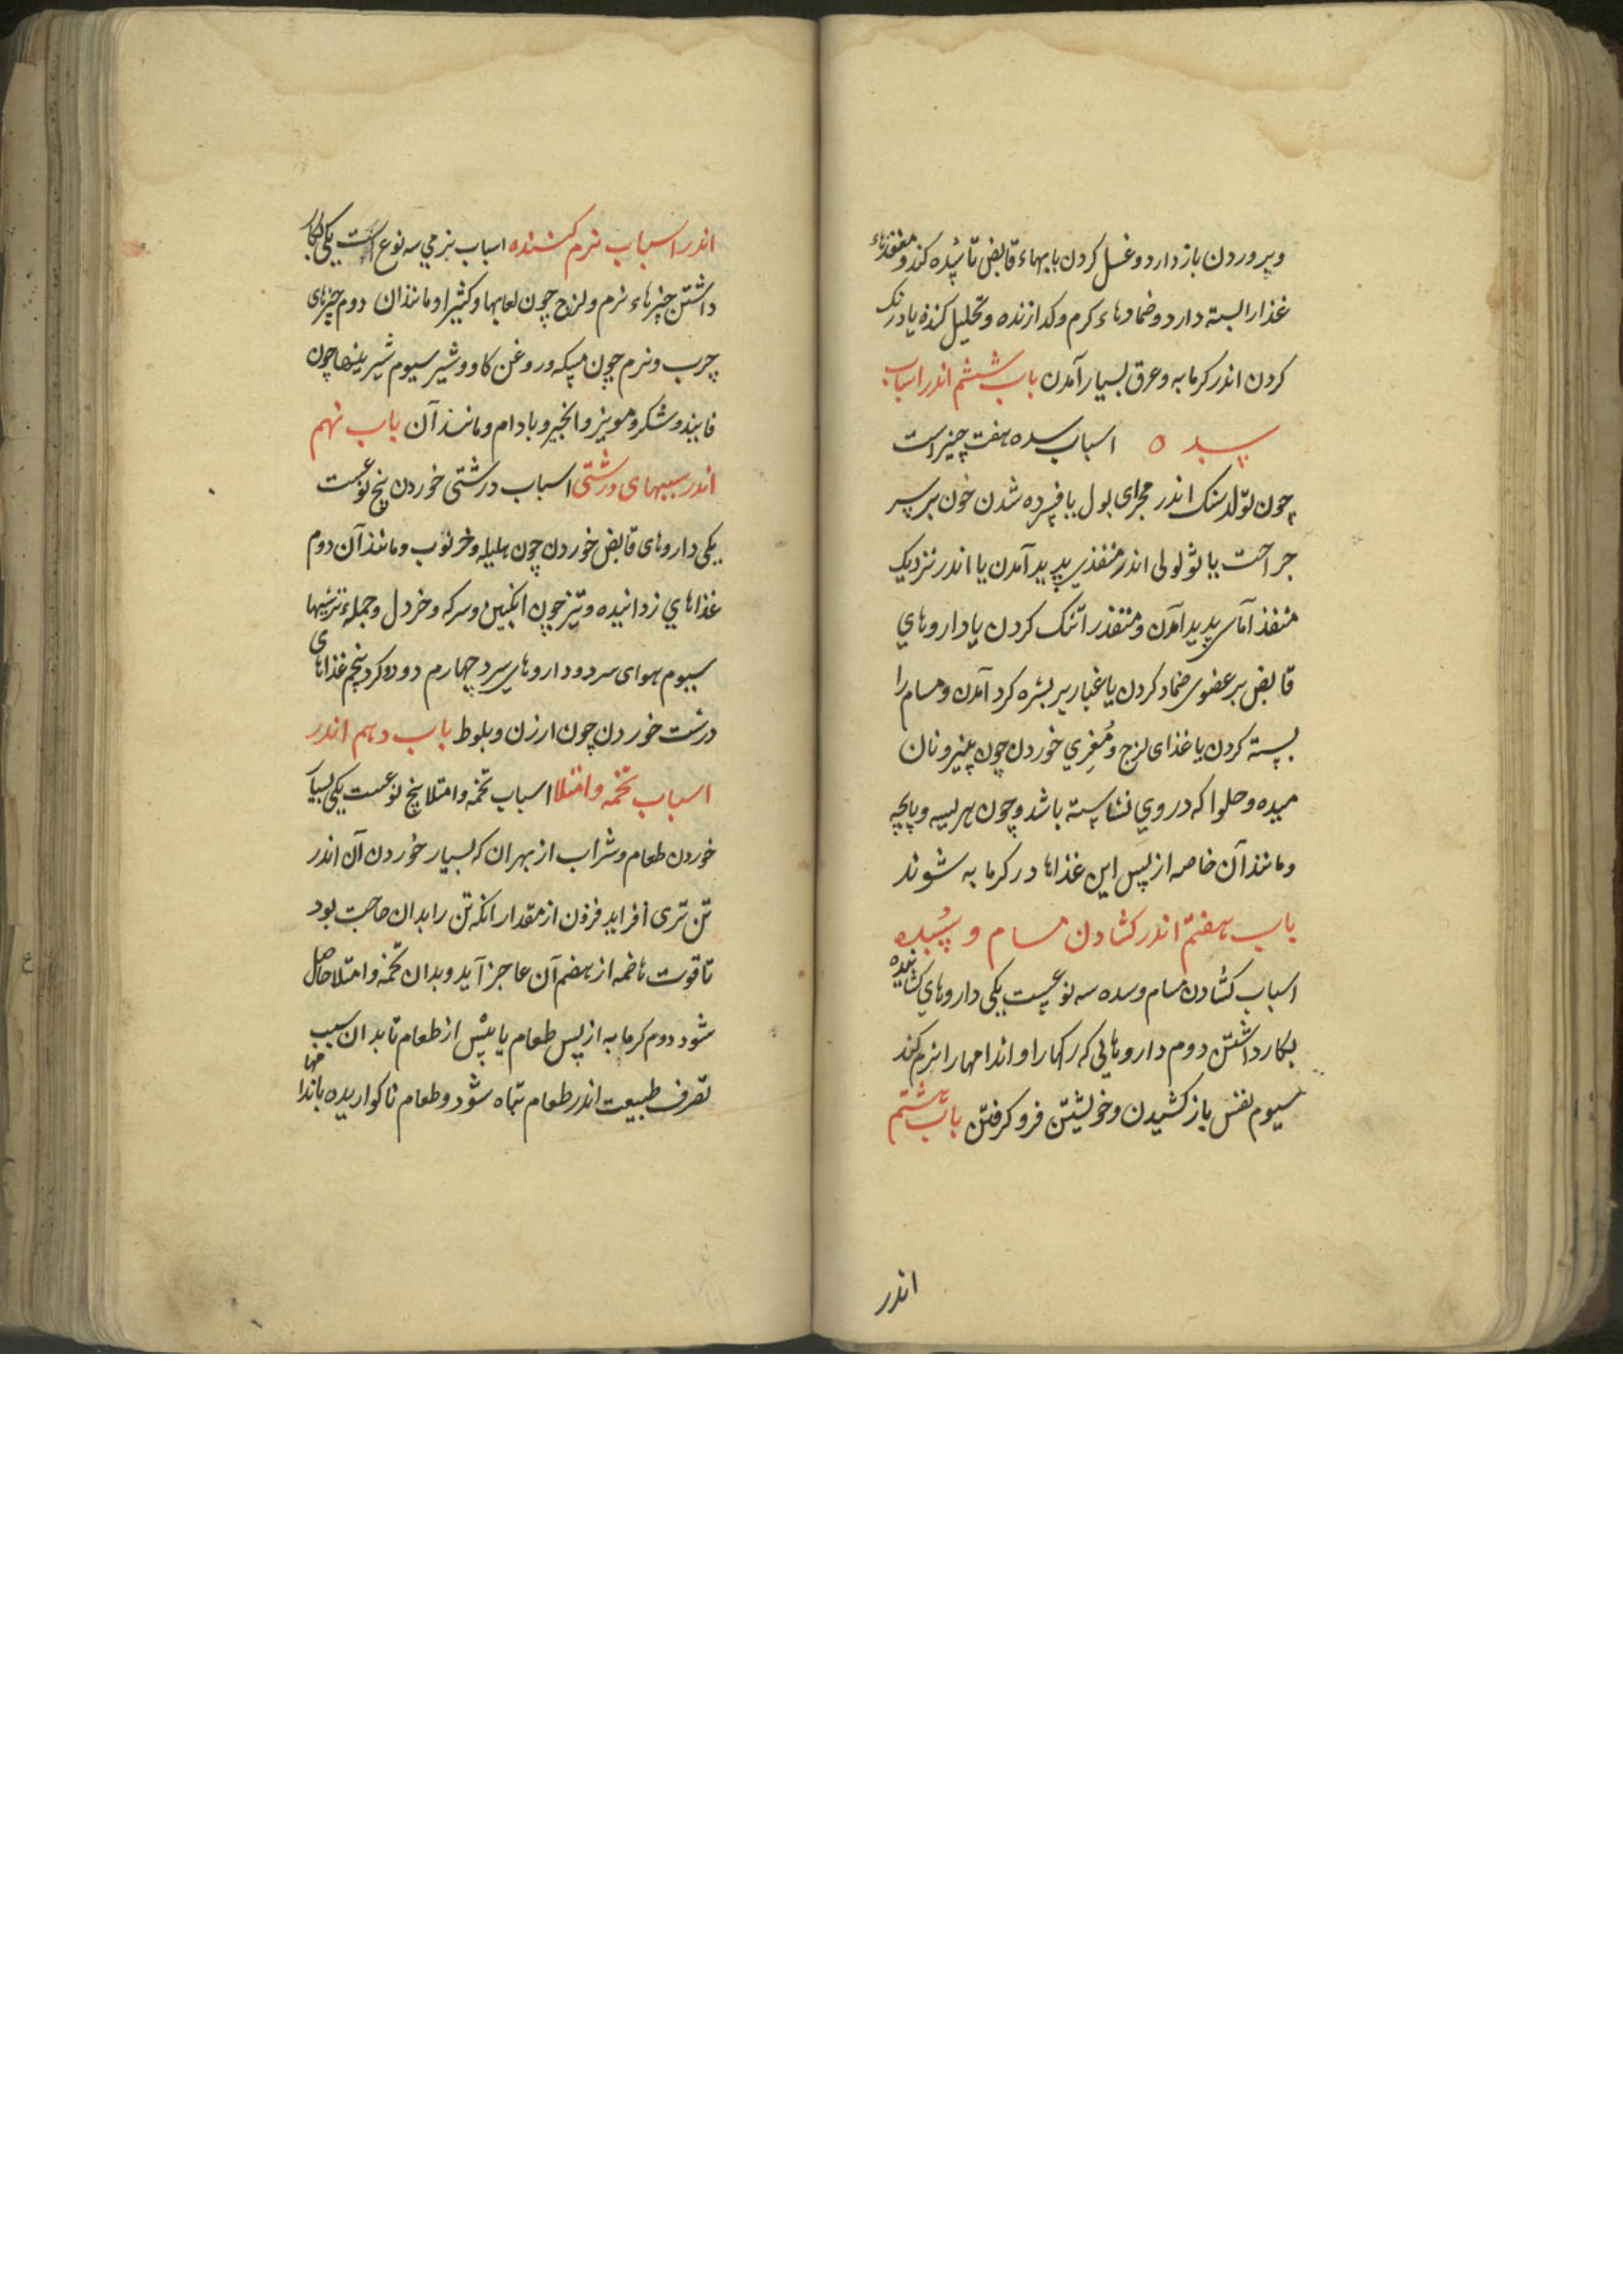 وپروردن باز دارد و غسل کردن بابهاء قابض تا سده کند و منفذهاء
غذا را بسته دارد و ضمادهاء کرم و کدازنده و تحلیل کننده یا درنک
کردن اندر کرمابه و عرق بسیار آمدن باب ششم اندر اسباب
سده اسباب سده هفت چیز است
چون تولد سنک اندر مجرای بول یا فسرده شدن خون بر سر
جراحت یا ثولولی اندر منفذی پدید آمدن یا اندر نزدیک
منفذ آماس پدید آمدن و منفذ را تنک کردن یا داروهاي
قابض بر عضوی ضماد کردن یا غبار بر بشره کرد آمدن و مسام را
بسته کردن یا غذای لزج و مُغِري خوردن چون پنیر و نان
میده و حلوا که در وي نشاسته باشد و چون هریسه و پاچه
و مانند آن خاصه از پس این غذاها در کرمابه شوند
باب هفتم اندر کشادن مسام و سُده
اسباب کشادن مسام و سده سه نوعست یکی داروهاي کشاینده
بکار داشتن دوم داروهائی که رکها را و اندامها را نرم کند
سیوم نفس باز کشیدن و خویشتن فرو کرفتن باب هشتم
اندر
اندر اسباب نرم کننده اسباب نرمي سه نوع است یکی بکار
داشتن چیزهاء نرم و لزج چون لعابها و کثیرا و مانند ان دوم چیزهای
چرب و نرم چون مسکه و روغن کاو و شیر سیوم شیرینیها چون
فانیذ و شکر و مویز و انجیر و بادام و مانند آن باب نهم
اندر سببهای درشتی اسباب درشتی خوردن پنج نوعست
یکی داروهای قابض خوردن چون هلیله و خرنوب و مانند آن دوم
غذاهاي زداینده و تیز چون انکبین و سرکه و خردل و جمله ترشیها
سیوم هوای سرد و داروهای سرد چهارم دود و کرد پنجم غذاهای
درشت خوردن چون ارزن و بلوط باب دهم اندر
اسباب تخمه و امتلا اسباب تخمه و امتلا پنج نوعست یکی بسیار
خوردن طعام و شراب از بهر ان که بسیار خوردن آن اندر
تن تری افزاید فزون از مقدار انکه تن را بدان حاجت بود
تا قوت هاضمه از هضم آن عاجز آید و بدان تخمه و امتلا حاصل
شود دوم کرمابه از پس طعام یا پیش از طعام تا بدان سبب
تصرف طبیعت اندر طعام تباه شود و طعام ناکواریده باندامها